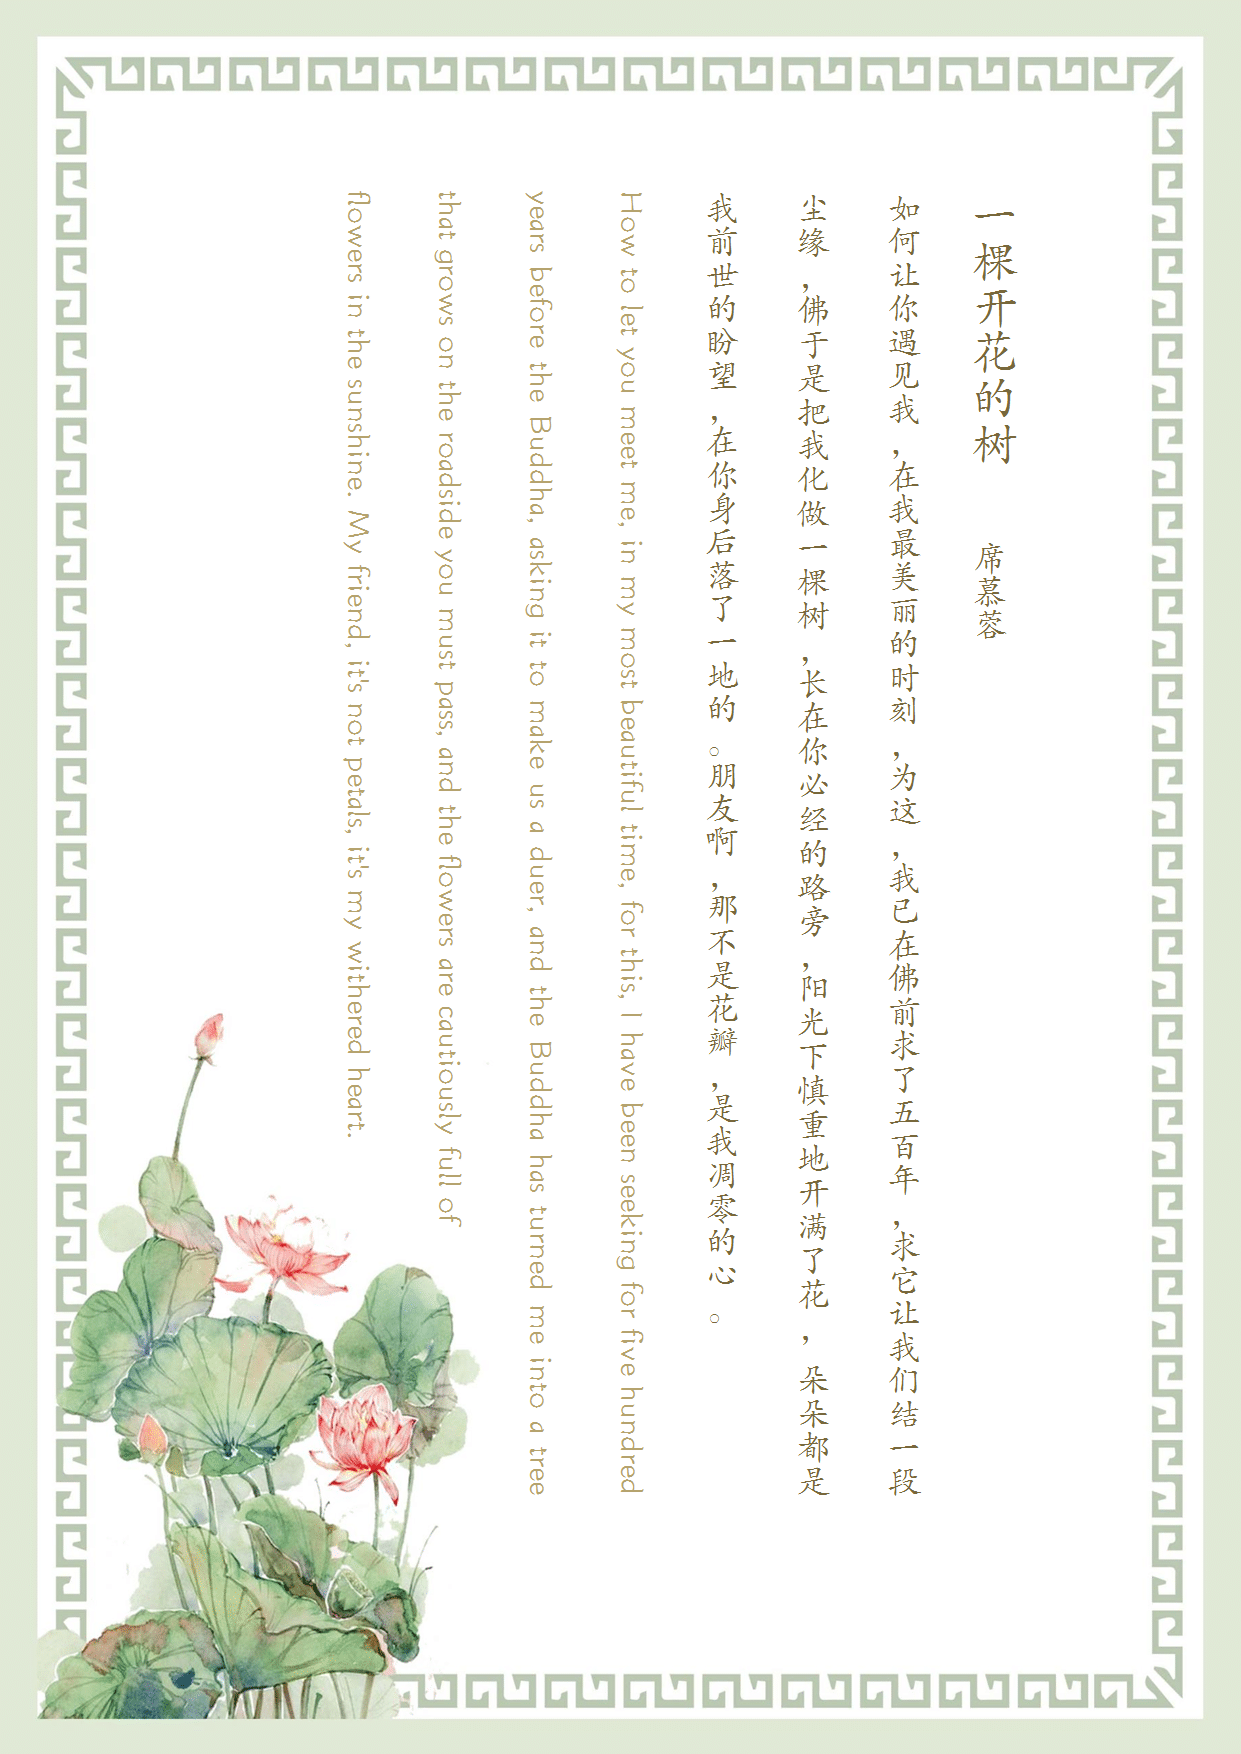 一棵开花的树 席慕蓉
如何让你遇见我，在我最美丽的时刻，为这，我已在佛前求了五百年，求它让我们结一段
尘缘，佛于是把我化做一棵树，长在你必经的路旁，阳光下慎重地开满了花，朵朵都是
我前世的盼望，在你身后落了一地的。朋友啊，那不是花瓣，是我凋零的心。
How to let you meet me, in my most beautiful time, for this, I have been seeking for five hundred
years before the Buddha, asking it to make us a duer, and the Buddha has turned me into a tree
that grows on the roadside you must pass, and the flowers are cautiously full of
flowers in the sunshine. My friend, it's not petals, it's my withered heart.